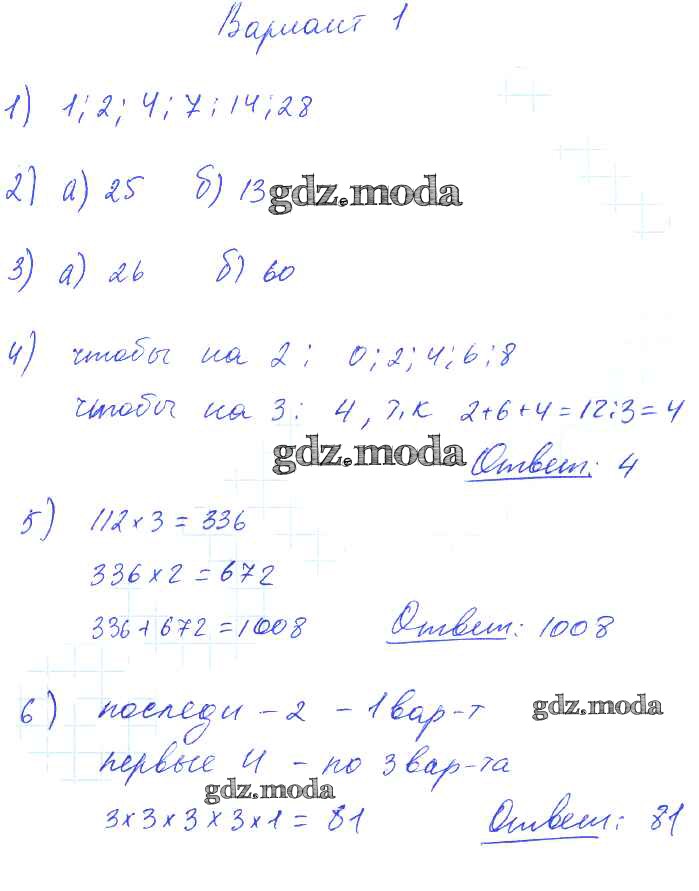 Вариант 1
1) 1; 2; 4; 7; 14; 28
2) а) 25 б) 13 gdz.moda
3) а) 26 б) 60
4) чтобы на 2: 0; 2; 4; 6; 8
чтобы на 3: 4, т.к 2+6+4=12:3=4
gdz.moda Ответ: 4
5) 112×3=336
336×2=672
336+672=1008 Ответ: 1008
6) последн - 2 - 1 вар-т gdz.moda
первые 4 - по 3 вар-та
gdz.moda
3×3×3×3×1=81 Ответ: 81